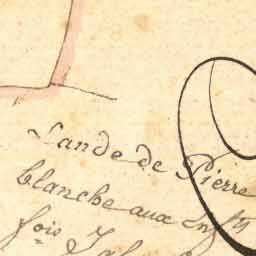 Lande de Pierre
blanche aux Enfts
fois